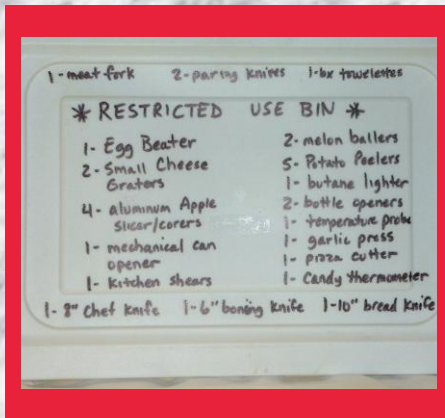 1-meat fork 2-paring knives 1-bx towelettes
* RESTRICTED USE BIN *
1- Egg Beater
2- Small Cheese
Graters
4- aluminum Apple
slicer/corers
1- mechanical can
opener
1- Kitchen shears
2- melon ballers
5- Potato Peelers
1- butane lighter
2- bottle openers
1- temperature probe
1- garlic press
1- pizza cutter
1- Candy thermometer
1- 8" Chef knife 1-6" boning knife 1-10" bread knife